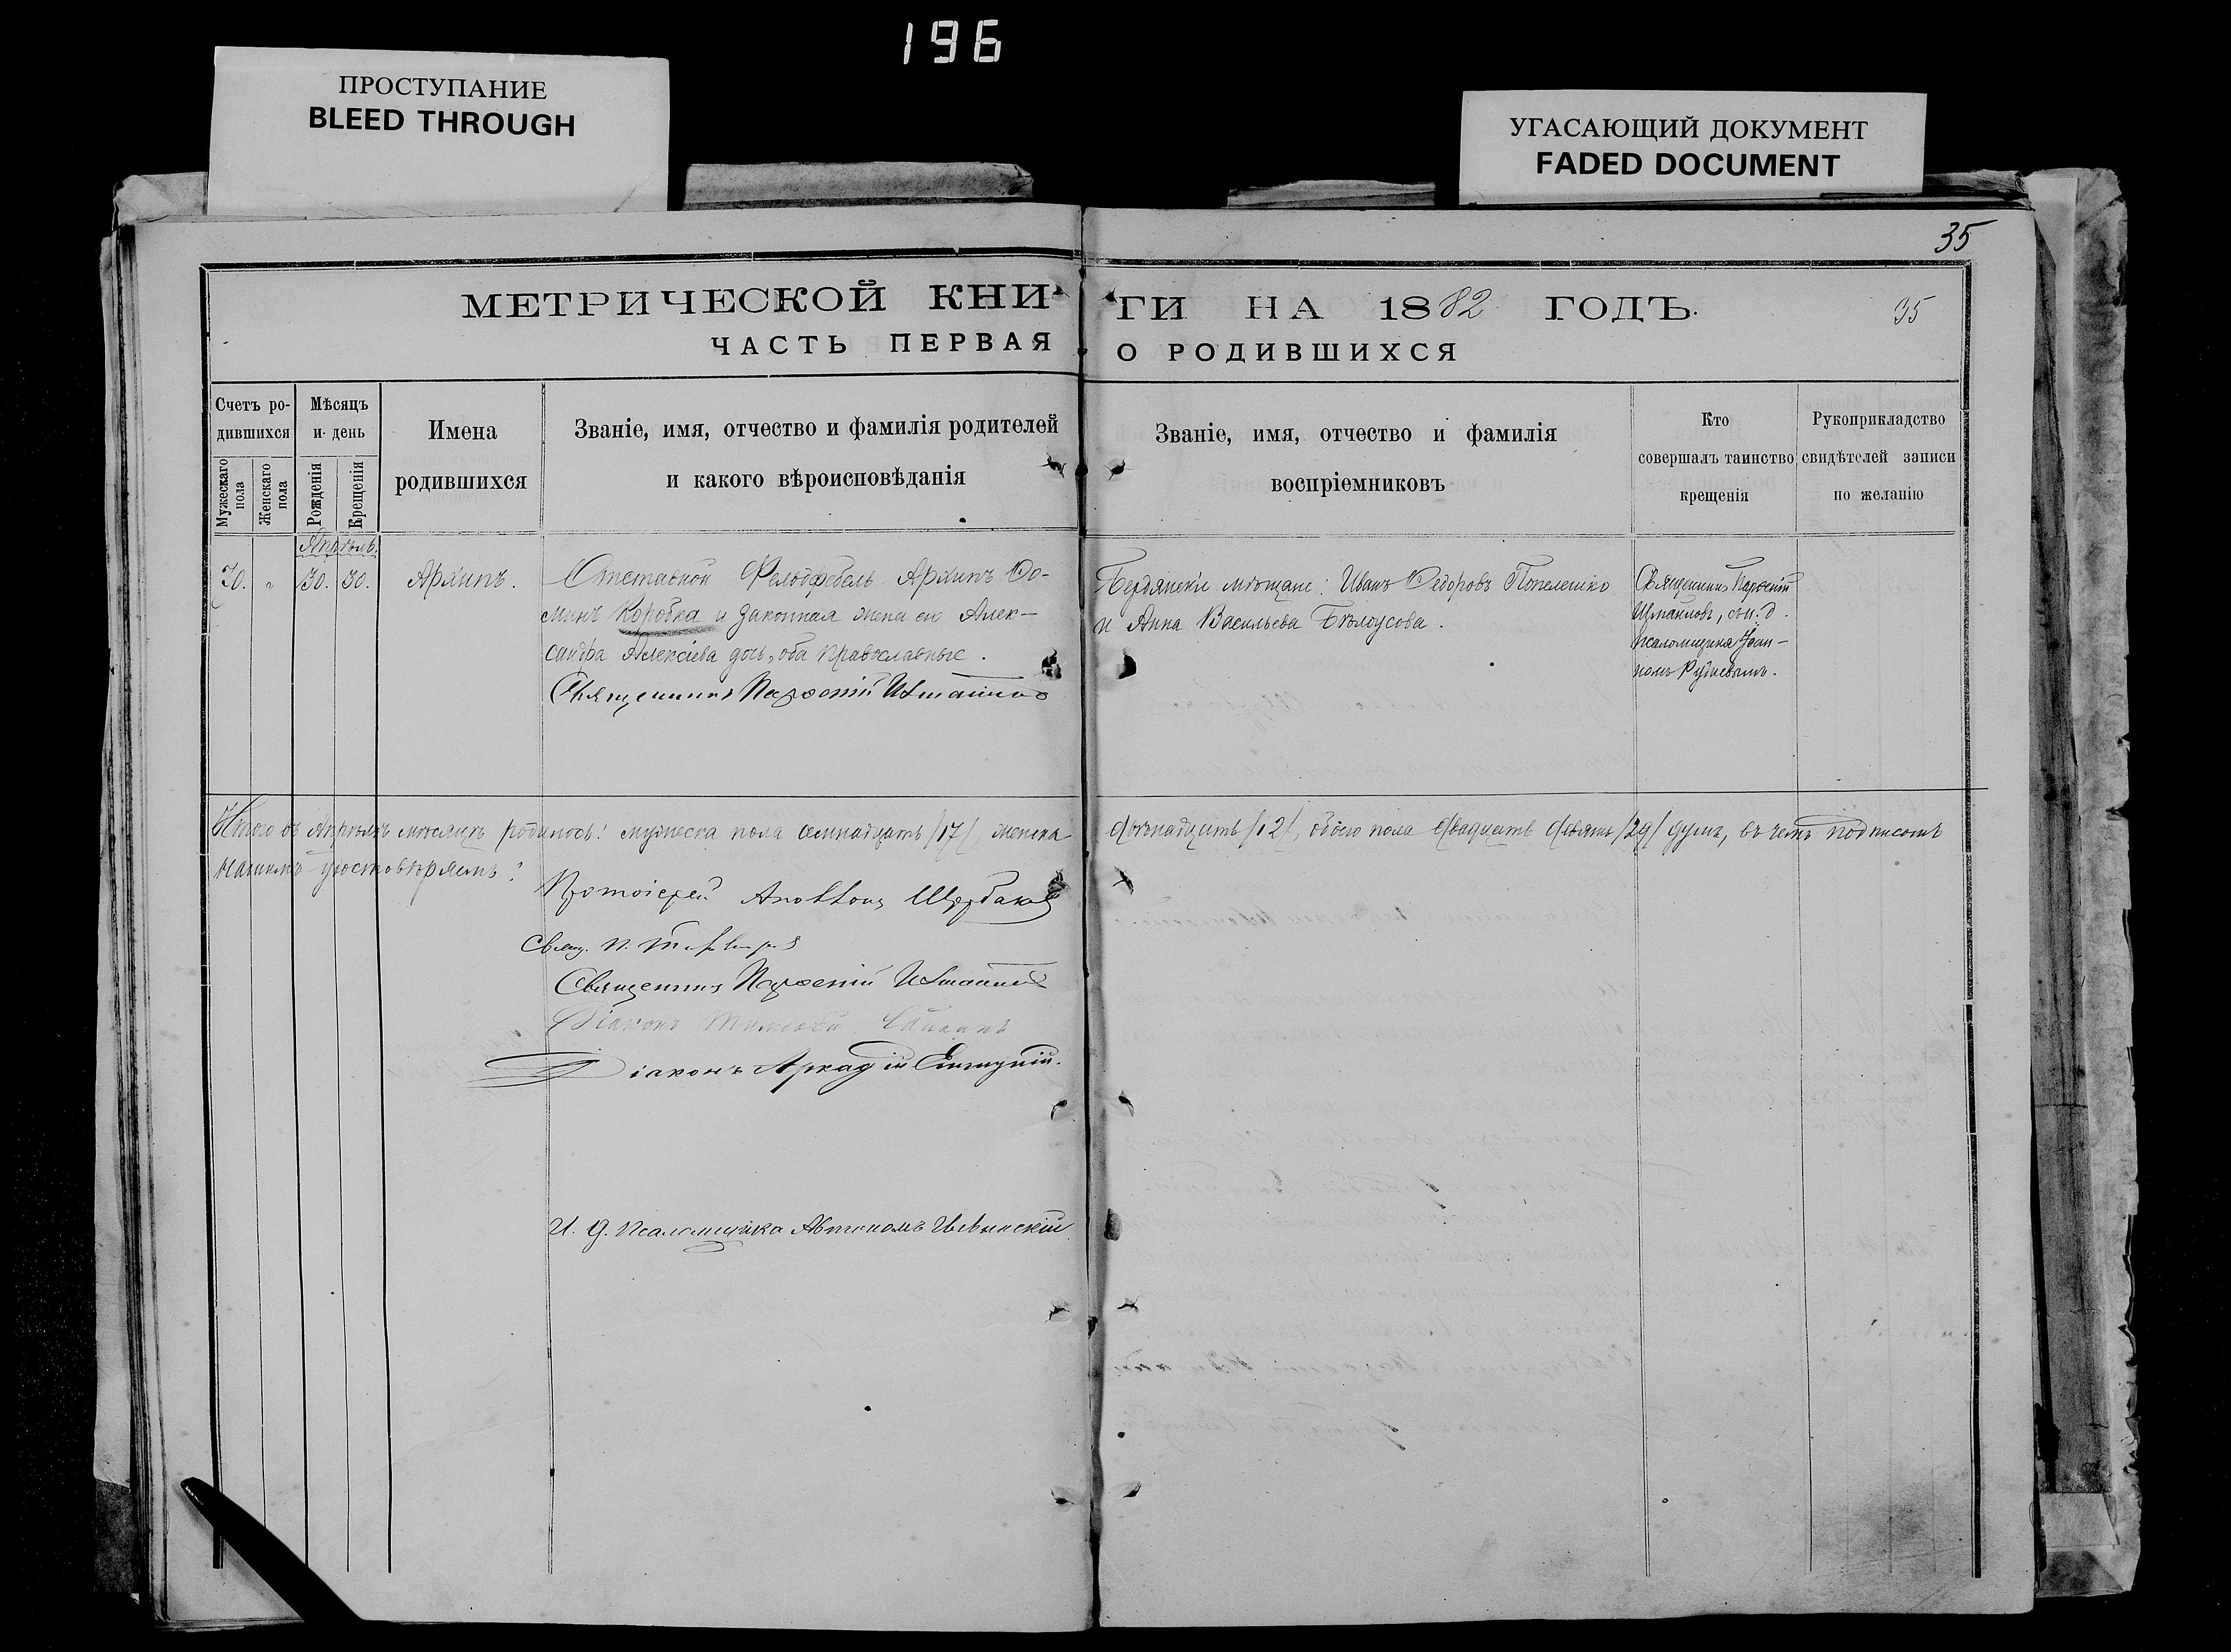 196
ПРОСТУПАНИЕ
BLEED THROUGH
УГАСАЮЩИЙ ДОКУМЕНТ
FADED DOCUMENT
35
МЕТРИЧЕСКОЙ КНИ-
ГИ НА 1882 ГОДЪ.
35
ЧАСТЬ ПЕРВАЯ
О РОДИВШИХСЯ
Счетъ ро-
дившихся
Мужескаго
пола
Женскаго
пола
Мѣсяцъ
и день
Рожденія
Крещенія
Имена
родившихся
Званіе, имя, отчество и фамилія родителей
и какого вѣроисповѣданія
Званіе, имя, отчество и фамилія
воспріемниковъ
Кто
совершалъ таинство
крещенія
Рукоприкладство
свидѣтелей записи
по желанію
Апрѣль
70. " 30. 30. Архипъ.
Отставной Фельдфебель Архипъ Ѳо-
минъ Коробка и законная жена его Алек-
сандра Алексіева дочь, оба православные.
Священникъ Парѳеній Измаиловъ
Бердянскіе мѣщане: Иванъ Ѳедоровъ Попелешко
и Анна Васильева Бѣлоусова.
Священникъ Парѳеній
Измаиловъ, съ и. д.
псаломщика Іоан-
номъ Рудневымъ.
Итого въ Апрѣлѣ мѣсяцѣ родилось: мужеска пола семнадцать /17/, женска
двѣнадцать /12/, обоего пола двадцать девять /29/ душъ, въ чемъ подписомъ
нашимъ удостовѣряемъ:
Протоіерей Аполлонъ Щербаковъ
Свящ. П.
Священникъ Парѳеній Измаиловъ
Діаконъ Тимоѳей
Діаконъ Аркадій
И. д. псаломщика Автономъ Ильинскій